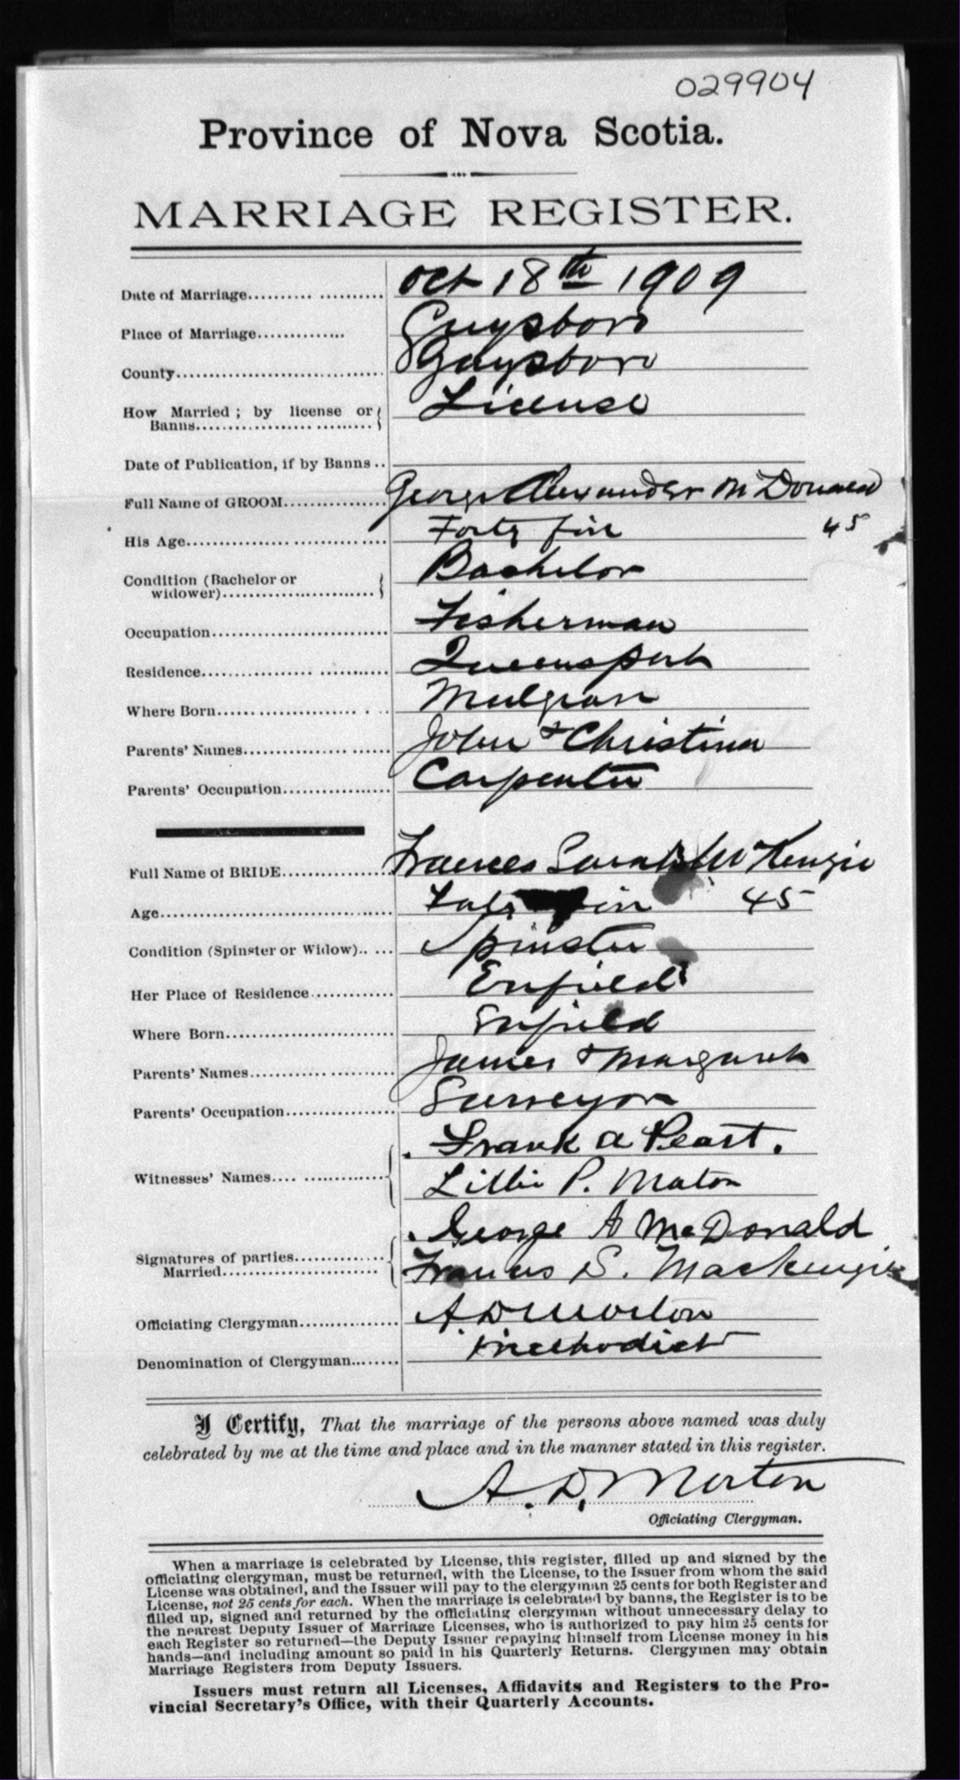 029904
Province of Nova Scotia.
MARRIAGE REGISTER.
Date of Marriage Oct 18th 1909
Place of Marriage Guysboro
County Guysboro
How Married; by license or Banns License
Date of Publication, if by Banns
Full Name of GROOM George Alexander McDonald
His Age Forty five 45
Condition (Bachelor or widower) Bachelor
Occupation Fisherman
Residence Queensport
Where Born Mulgrave
Parents' Names John & Christina
Parents' Occupation Carpenter
Full Name of BRIDE Frances Sarah McKenzie
Age Forty five 45
Condition (Spinster or Widow) Spinster
Her Place of Residence Enfield
Where Born Enfield
Parents' Names James & Margaret
Parents' Occupation Surveyor
Witnesses' Names Frank A Peart.
Lillie P. Morton
Signatures of parties Married George A McDonald
Frances S. Mackenzie
Officiating Clergyman A. D. Morton
Denomination of Clergyman Methodist
I Certify, That the marriage of the persons above named was duly
celebrated by me at the time and place and in the manner stated in this register.
A. D. Morton
Officiating Clergyman.
When a marriage is celebrated by License, this register, filled up and signed by the
officiating clergyman, must be returned, with the License, to the Issuer from whom the said
License was obtained, and the Issuer will pay to the clergyman 25 cents for both Register and
License, not 25 cents for each. When the marriage is celebrated by banns, the Register is to be
filled up, signed and returned by the officiating clergyman without unnecessary delay to
the nearest Deputy Issuer of Marriage Licenses, who is authorized to pay him 25 cents for
each Register so returned—the Deputy Issuer repaying himself from License money in his
hands—and including amount so paid in his Quarterly Returns. Clergymen may obtain
Marriage Registers from Deputy Issuers.
Issuers must return all Licenses, Affidavits and Registers to the Pro-
vincial Secretary's Office, with their Quarterly Accounts.